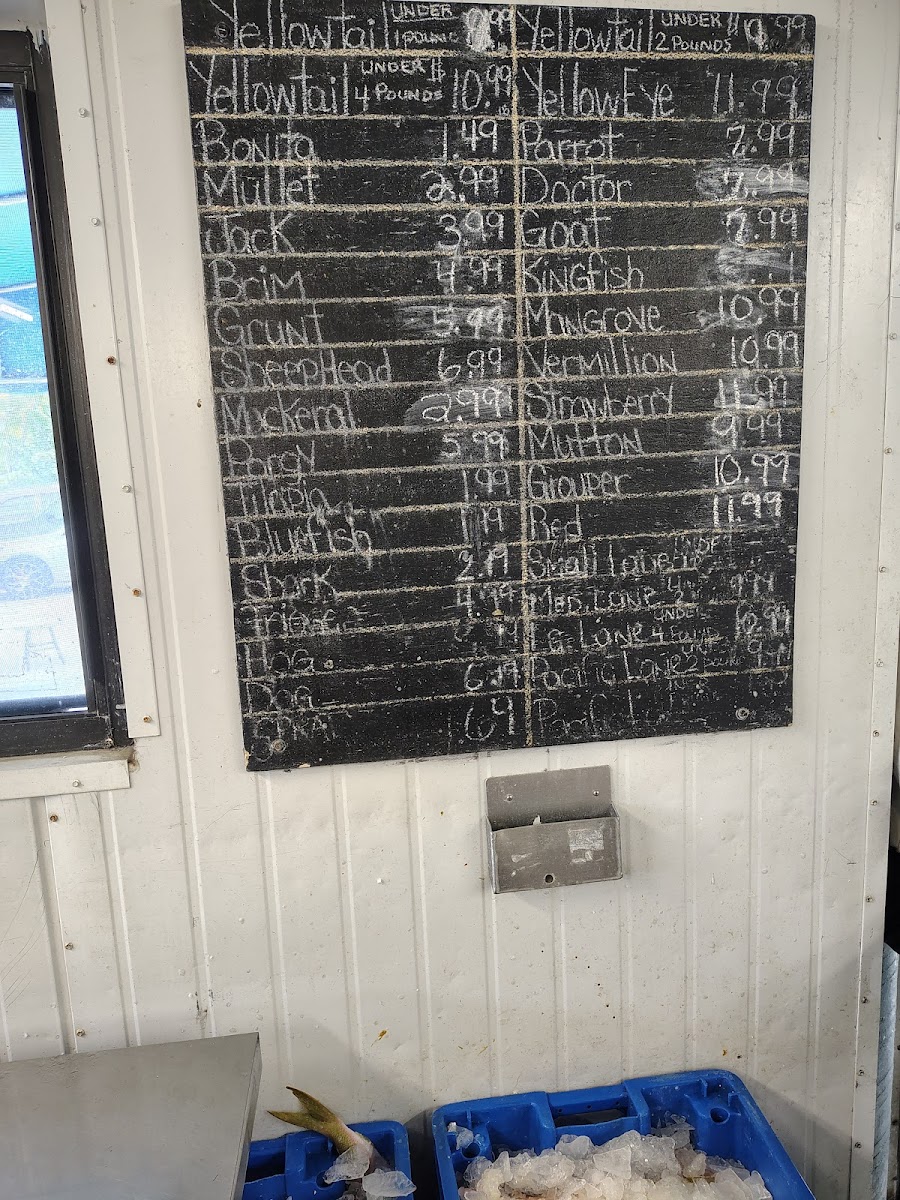 Yellowtail UNDER 1 POUND
Yellowtail UNDER 2 POUNDS
Yellowtail UNDER 4 POUNDS $10.99
YellowEye 11.99
Bonito 1.49
Parrot 7.99
Mullet 2.99
Doctor 7.99
Jack 3.99
Goat 7.99
Brim 4.99
Kingfish
Grunt 5.99
Mangrove 10.99
SheepHead 6.99
Vermillion 10.99
Mackeral 2.99
Strawberry 11.99
Porgy 5.99
Mutton 9.99
Tilapia 1.99
Grouper 10.99
Bluefish
Red 11.99
Shark
Small Lane UNDER
Med. Lane
Lg Lane UNDER 4 10.99
Hog
Pacific Lane 2
Dog
Pacific